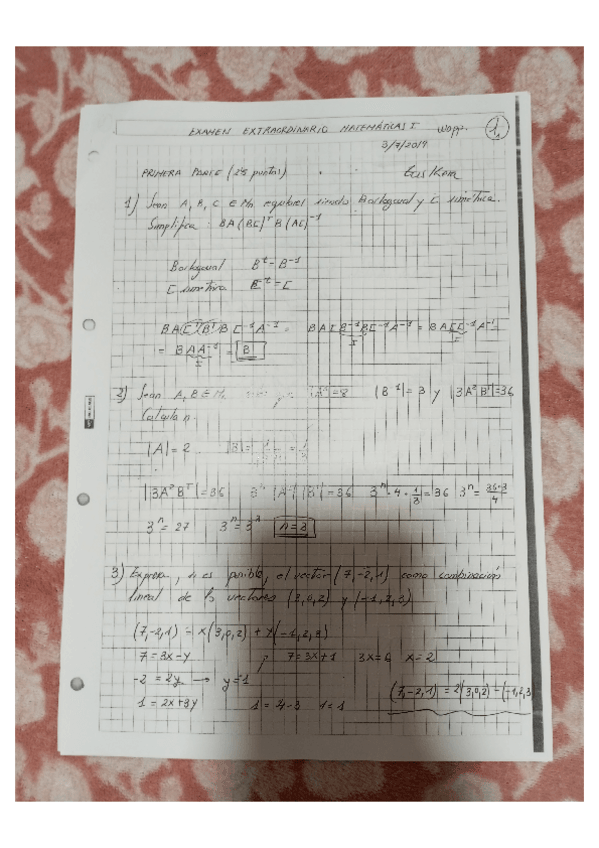 EXAMEN EXTRAORDINARIO MATEMÁTICAS I
3/7/2017
PRIMERA PARTE (2'5 puntos)
1) Sean A, B, C ∈ Mn regulares siendo B ortogonal y C simétrica.
Simplifica: BA(BC)ᵀB(AC)⁻¹
B ortogonal Bᵗ = B⁻¹
C simétrica Cᵗ = C
BA(CᵀBᵀ)BC⁻¹A⁻¹ = BACB⁻¹BC⁻¹A⁻¹ = BACC⁻¹A⁻¹
I I
= BAA⁻¹ = B
I
2) Sean A, B ∈ Mn |B⁻¹| = 3 y |3A²Bᵀ| = 36
Calcula n.
|A| = 2
|3A²Bᵀ| = 36 3ⁿ |A²| |Bᵗ| = 36 3ⁿ · 4 · 1/3 = 36 3ⁿ = 36·3/4
3ⁿ = 27 3ⁿ = 3³ n = 3
3) Expresa, si es posible, el vector (7,-2,1) como combinación
lineal de los vectores (3,0,2) y (-1,2,3)
(7,-2,1) = x(3,0,2) + y(-1,2,3)
7 = 3x - y ; 7 = 3x + 1 3x = 6 x = 2
-2 = 2y → y = -1
1 = 2x + 3y 1 = 4 - 3 1 = 1
(7,-2,1) = 2(3,0,2) - (-1,2,3